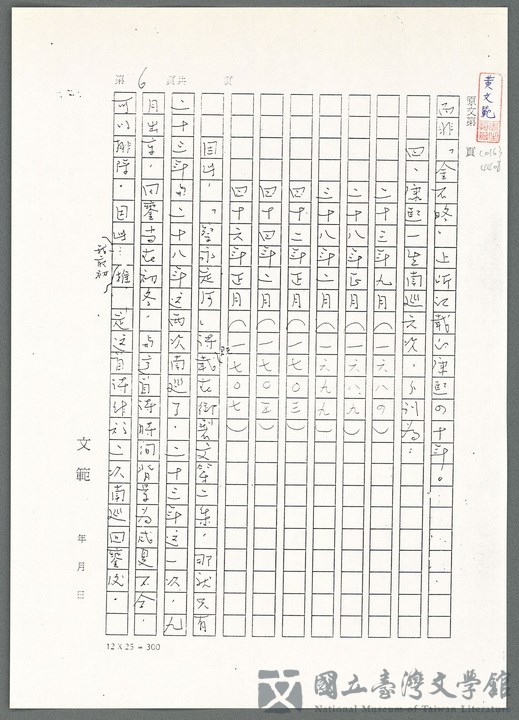 黃文範
原文第 頁
第 6 頁共 頁
而非「金石略」上所記載的康熙四十年。
四、康熙一生南巡六次,分別為:
二十三年九月(一六八四)
二十八年正月(一六八九)
三十八年二月(一六九九)
四十二年正月(一七〇三)
四十四年二月(一七〇五)
四十六年正月(一七〇七)
因此,「登永定河」詩既載在御製文第二集,那就只有
二十三年與二十八年這兩次南巡了。二十三年這一次,九
月出京,回鑾當在初冬,與這首詩時間背景為咸是不合,
可以排除。因此,推定這首詩作於二次南巡回鑾後。
我最初
文範 年 月 日
12 X 25 = 300
國立臺灣文學館
National Museum of Taiwan Literature